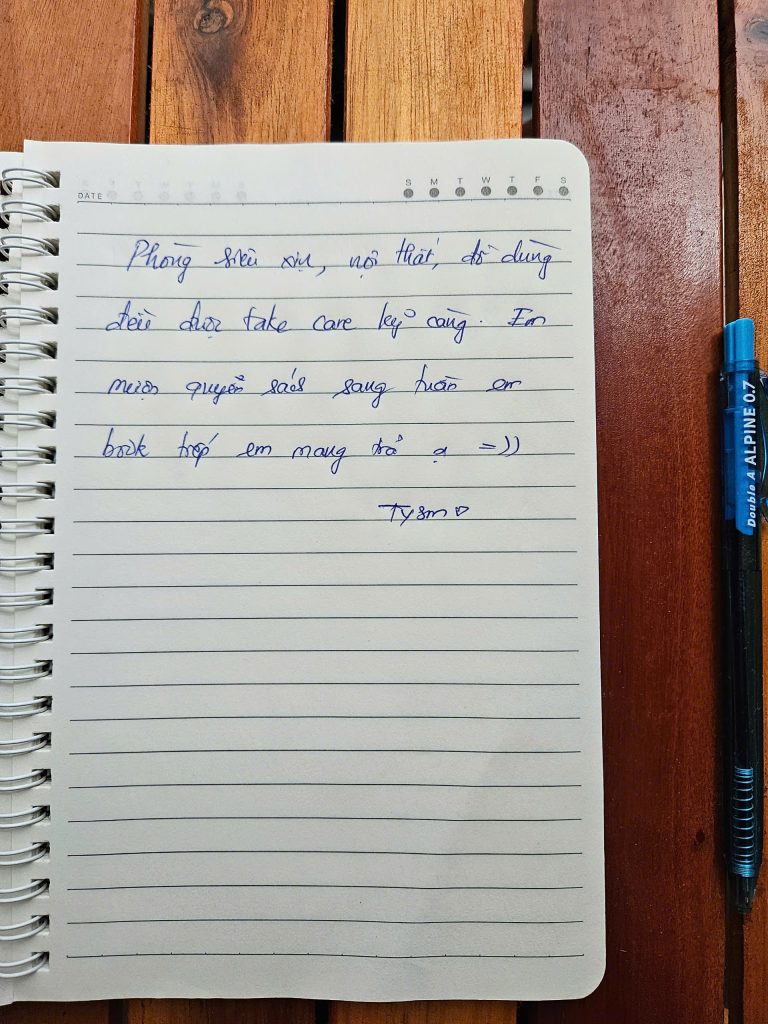 DATE
S M T W T F S
Phòng siêu xịn, nội thất, đồ dùng
đều được take care kỹ càng. Em
mượn quyển sách sang tuần em
book tiếp em mang trả ạ =))
Tysm ♡
Double A ALPINE 0.7